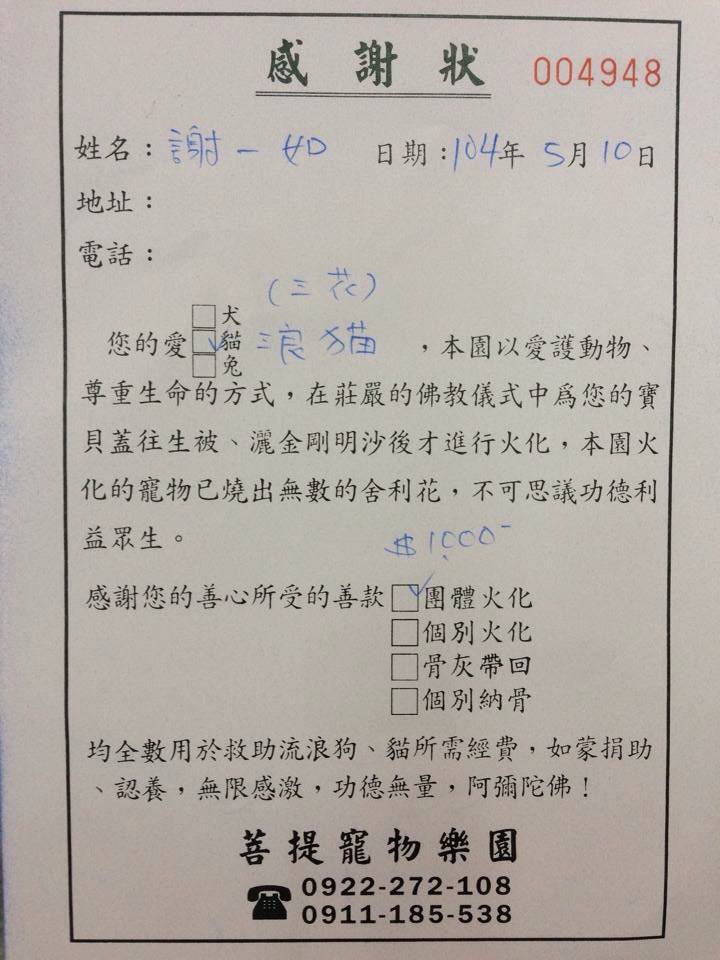 感謝狀 004948
姓名：謝一如 日期：104年5月10日
地址：
電話：
(三花)
□犬
您的愛☑貓 浪猫，本園以愛護動物、
□兔
尊重生命的方式，在莊嚴的佛教儀式中爲您的寶
貝蓋往生被、灑金剛明沙後才進行火化，本園火
化的寵物已燒出無數的舍利花，不可思議功德利
益眾生。
$1000-
感謝您的善心所受的善款☑團體火化
□個別火化
□骨灰帶回
□個別納骨
均全數用於救助流浪狗、貓所需經費，如蒙捐助
、認養，無限感激，功德無量，阿彌陀佛！
菩提寵物樂園
☎0922-272-108
0911-185-538